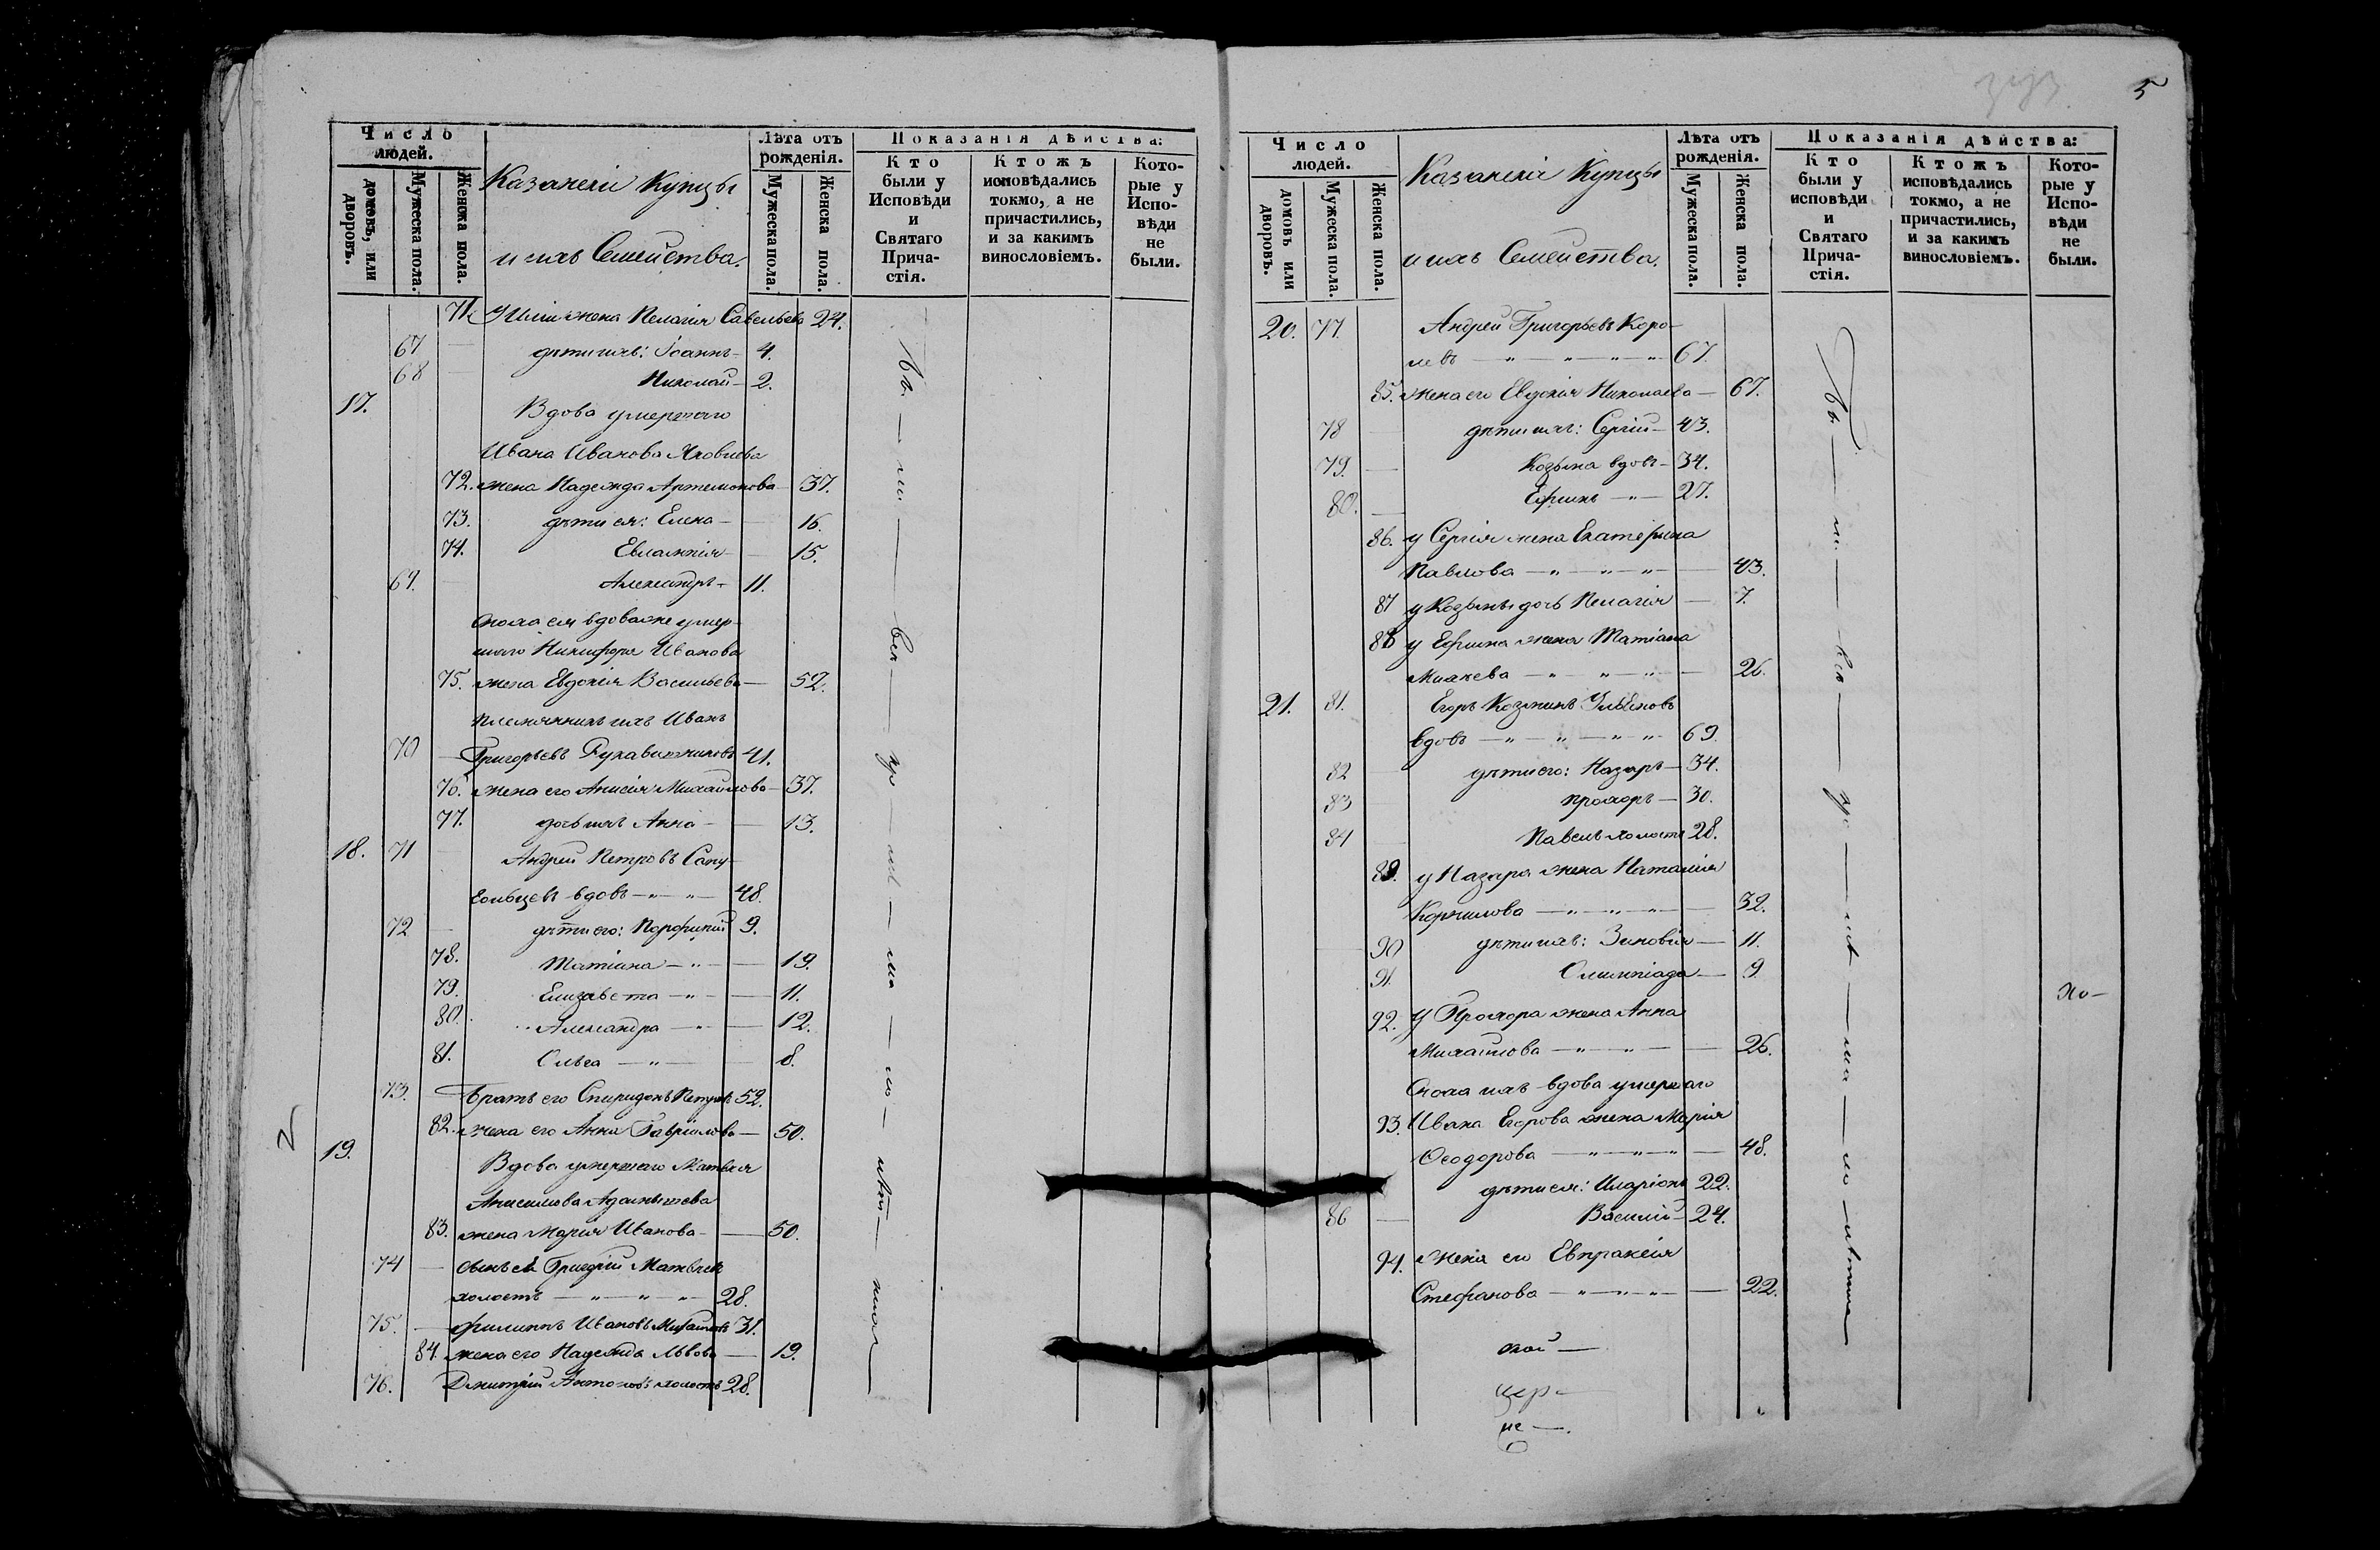 Число людей.
домовъ, или дворовъ.
Мужеска пола.
Женска пола.
Казанскіе Купцы
и ихъ Семейства.
Лѣта отъ рожденія.
Мужеска пола.
Женска пола.
Показанія дѣйства:
Кто были у Исповѣди и Святаго Причастія.
Ктожъ исповѣдались токмо, а не причастились, и за какимъ винословіемъ.
Которые у Исповѣди не были.
71. жена Пелагія Савельева 24.
67 дѣти ихъ: Іоаннъ — 4.
68 Николай — 2.
17. Вдова умершаго
Ивана Иванова Яковлева
72. жена Надежда Артемонова — 37.
73. дѣти ея: Елена — 16.
74. Евлампія — 15.
69. Александръ — 11.
сноха ея вдова же умер-
шаго Никифора Иванова
75. жена Евдокія Васильева — 52.
племянникъ ихъ Иванъ
70 — Григорьевъ Рукавишниковъ 41.
76. жена его Анисія Михайлова — 37.
77. дочь ихъ Анна — 13.
18. 71 Андрей Петровъ Сапу-
гольцевъ вдовъ — " — " — 48.
72 дѣти его: Порфирий 9.
78. Татіана — " — 19.
79. Елизавета — " — 11.
80. Александра — " — 12.
81. Ольга — " — 8.
73. Братъ его Спиридонъ Петровъ 52.
82. жена его Анна Гавріилова — 50.
19. Вдова умершаго Матвея
Анисимова
83. жена Марія Иванова — 50.
74 — сынъ ея Григорій Матвеевъ
холостъ — " — " — " — 28.
75. — Филиппъ Ивановъ Михайловъ 31.
84. жена его Надежда Львова — 19.
76. Дмитрій Антоновъ холостъ 28.
5
Число людей.
домовъ или дворовъ.
Мужеска пола.
Женска пола.
Казанскіе Купцы
и ихъ Семейства.
Лѣта отъ рожденія.
Мужеска пола.
Женска пола.
Показанія дѣйства:
Кто были у исповѣди и Святаго Причастія.
Ктожъ исповѣдались токмо, а не причастились, и за какимъ винословіемъ.
Которые у Исповѣди не были.
20. 77. Андрей Григорьевъ Коро-
левъ — " — " — " — " — 67.
85. жена его Евдокія Николаева — 67.
78 дѣти ихъ: Сергій — 43.
79. Козьма вдовъ — 34.
80. Ефимъ — " — 27.
86. у Сергія жена Екатерина
Павлова — " — " — " — 43.
87 у Козьмы дочь Пелагія — 7.
88 у Ефима жена Татіана
— " — " — " — 26.
21. 81. Егоръ Козминъ
вдовъ — " — " — " — " — 69.
82 дѣти его: Назаръ — 34.
83 Прохоръ — 30.
84 Павелъ холостъ 28.
89. у Назара жена Наталія
Корнилова — " — " — " — 32.
90 дѣти ихъ: Зиновія — 11.
91. Олимпіада — 9.
92. У Прохора жена Анна
Михайлова — " — " — 26.
Сноха ихъ вдова умершаго
93. Ивана Егорова жена Марія
Ѳеодорова — " — " — " — 48.
дѣти ея: Иларіонъ 22.
86 Василій — 24.
94. жена его Евпраксія
Стефанова — " — " — " — 22.